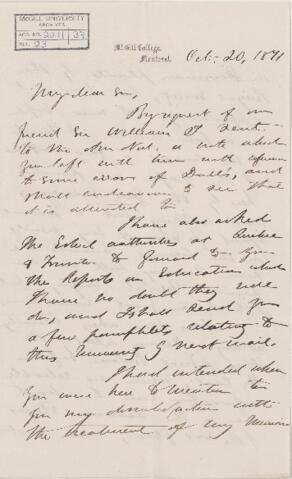 McGILL UNIVERSITY
ARCHIVES
ACC. NO. 2211 / 37
REF. 23
McGill College,
Montreal.
Oct: 20, 1871
My dear Sir,
By request of our
friend Sir William I sent
to the a note which
you left with him with reference
to some errors of and
shall endeavour to see that
it is attended to
I have also asked
the authorities at Quebec
& Toronto to forward to you
the Reports on Education which
I have no doubt they will
do, and I shall send you
a few pamphlets relating to
this University by next mail.
I had intended when
you were here to mention to
you my dissatisfaction with
the treatment of my Memoir